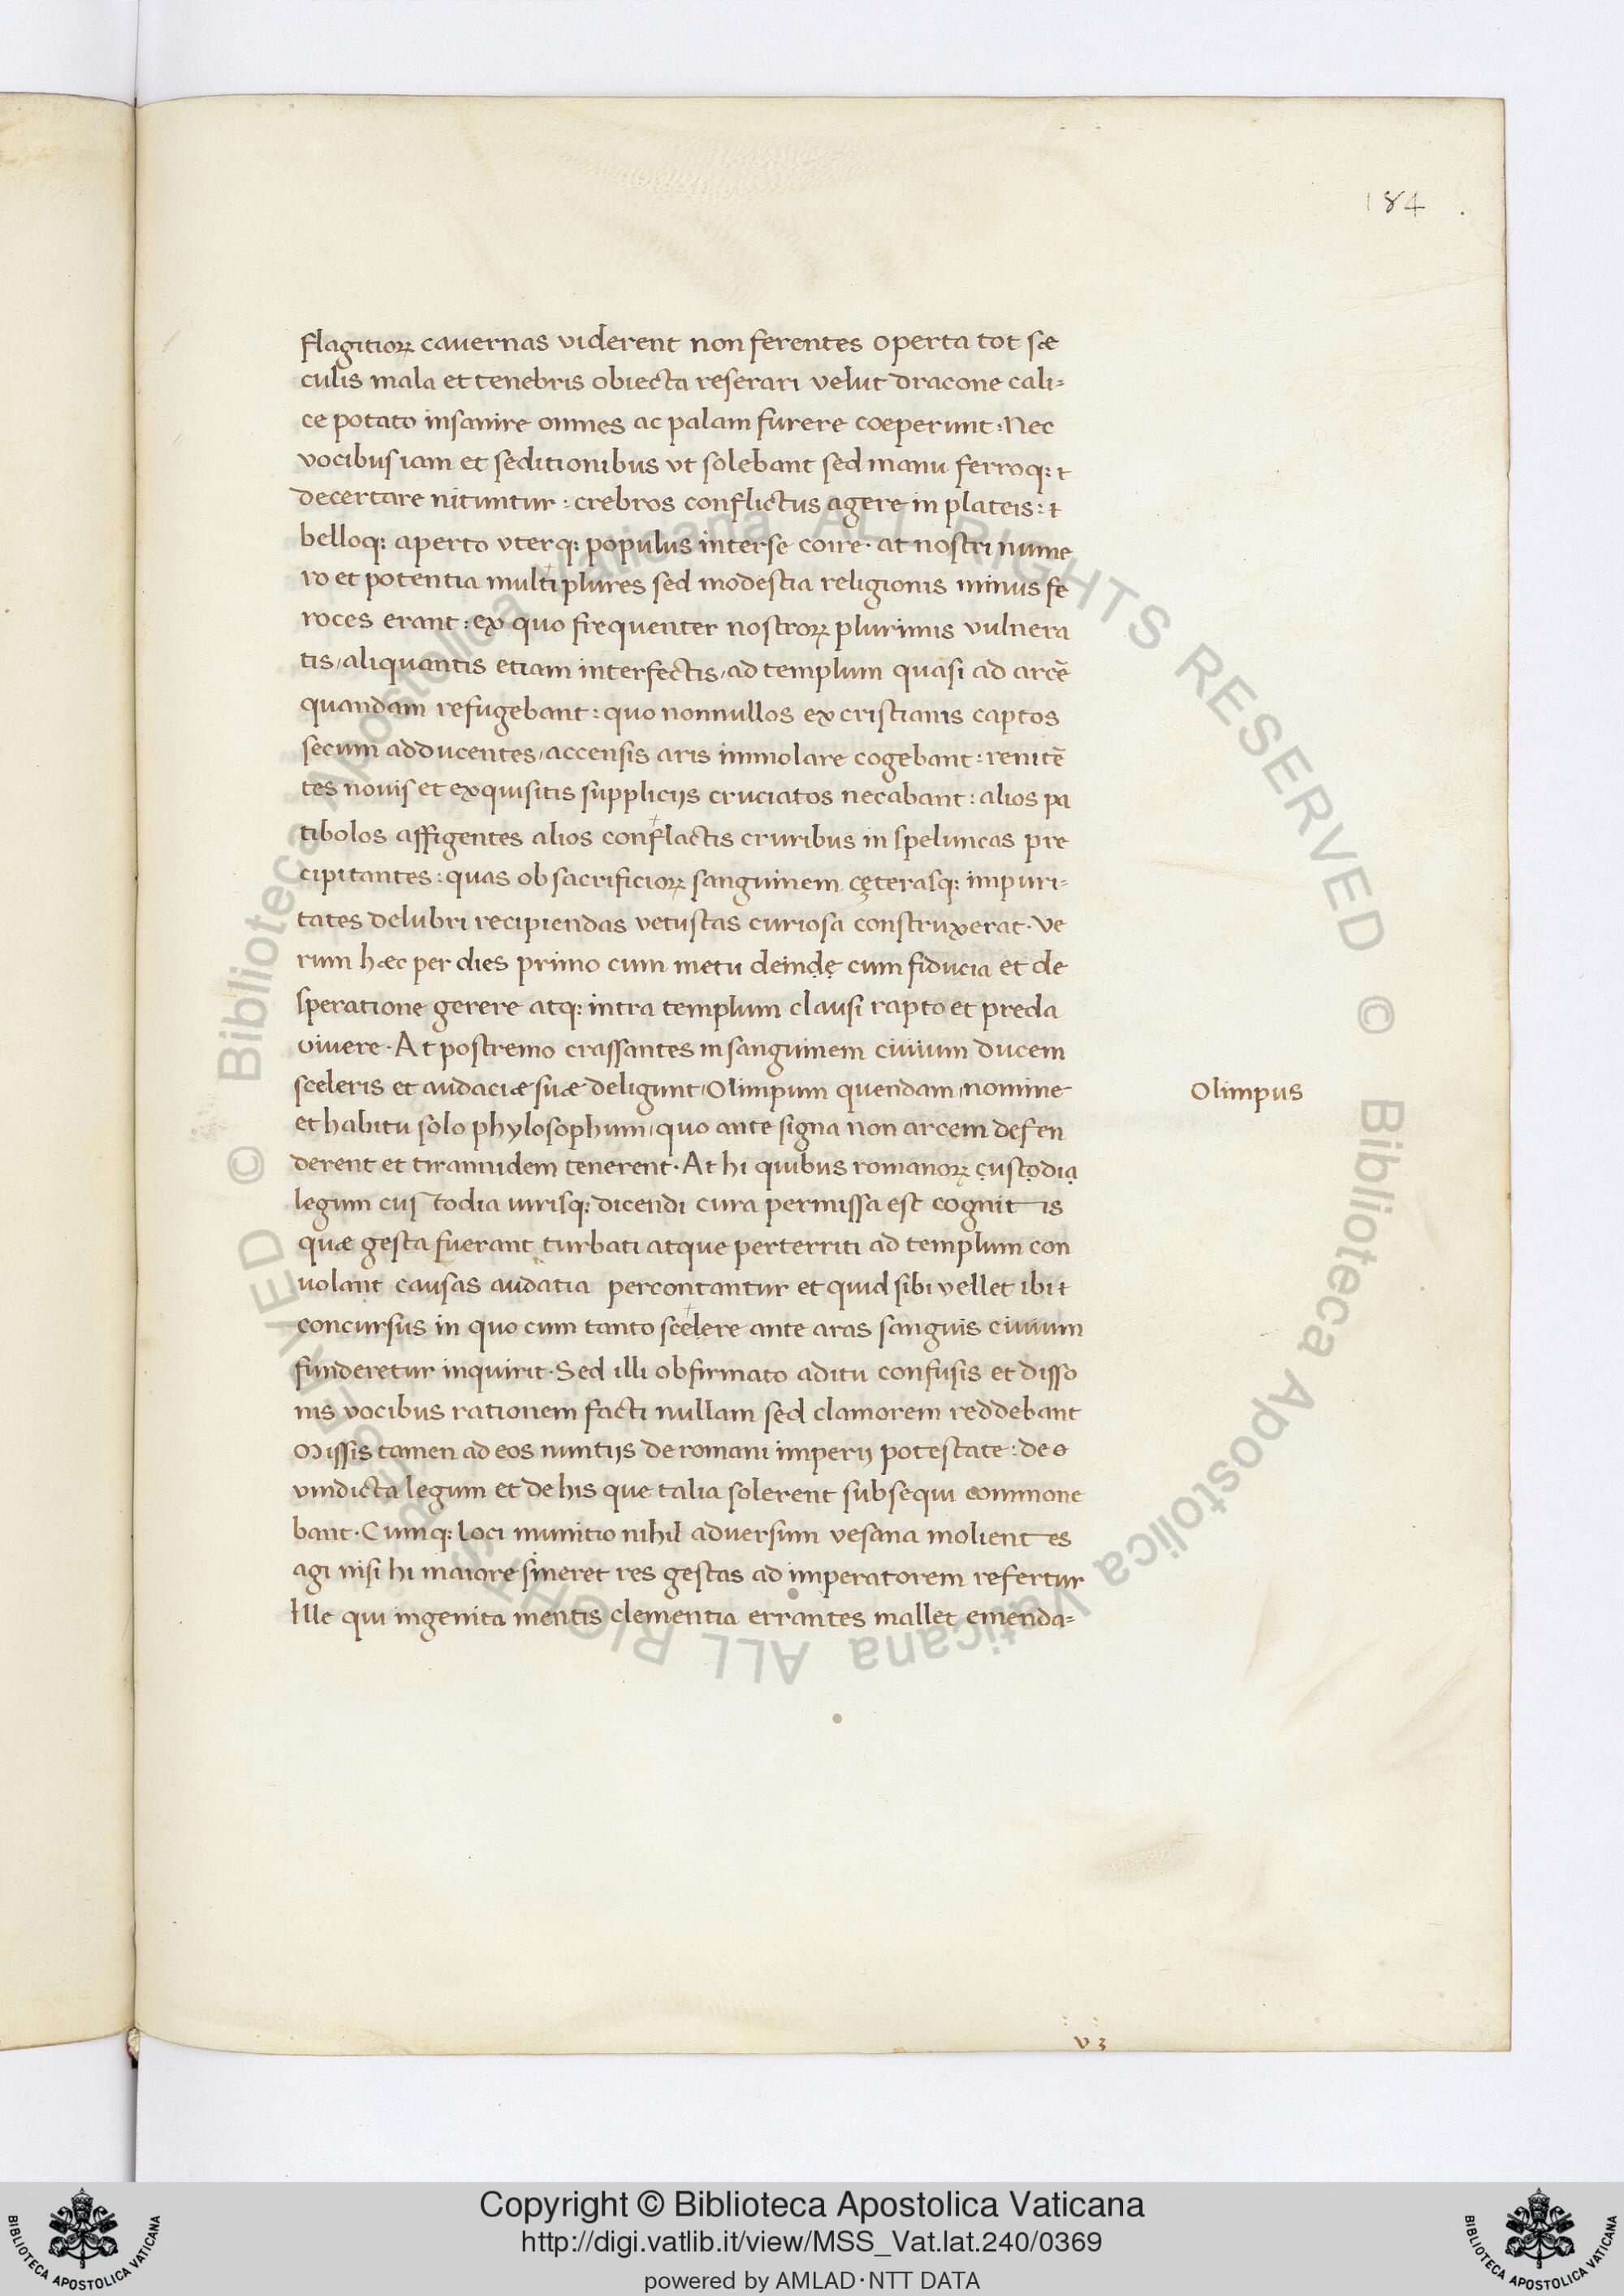 184
flagitioꝝ cauernas viderent non ferentes operta tot sæ
culis mala et tenebris obiecta reserari velut dracone cali=
ce potato insanire omnes ac palam furere coeperunt: Nec
vocibus iam et seditionibus vt solebant sed manu ferroq: ⁊
decertare nituntur: crebros conflictus agere in plateis: ⁊
belloq: aperto vterq: populus inter se coire· at nostri nume
ro et potentia multi plures sed modestia religionis minus fe
roces erant: ex quo frequenter nostroꝝ plurimis vulnera
tis/aliquantis etiam interfectis/ad templum quasi ad arcē
quandam refugebant: quo nonnullos ex cristianis captos
secum adducentes/accensis aris immolare cogebant: renitē
tes nouis et exquisitis supplicijs cruciatos necabant: alios pa
tibolos affigentes alios conflactis cruribus in speluncas pre
cipitantes: quas ob sacrificioꝝ sanguinem cęterasq: impuri=
tates delubri recipiendas vetustas curiosa construxerat· Ve
rum hæc per dies primo cum metu deinḍẹ cum fiducia et de
speratione gerere atq: intra templum clausi rapto et preda
viuere· At postremo crassantes in sanguinem ciuium ducem
sceleris et audaciæ suæ deligunt/Olimpum quendam/nomine
et habitu solo phylosophum/quo ante signa non arcem defen
Olimpus
derent et tirannidem tenerent· At hi quibus romanoꝝ c̣usṭọdiạ
legum custodia iurisq: dicendi cura permissa est cognitis
quæ gesta fuerant turbati atque perterriti ad templum con
uolant causas audatia percontantur et quid sibi vellet ibi ⁊
concursus in quo cum tanto scelere ante aras sanguis ciuium
funderetur inquirit· Sed illi obfirmato aditu confusis et disso
nis vocibus rationem facti nullam sed clamorem reddebant
Missis tamen ad eos nuntijs de romani imperij potestate: de
vindicta legum et de his que talia solerent subsequi commone
bant· Cumq: loci munitio nihil aduersum vesana molientes
agi nisi hi maiore sineret res gestas ad imperatorem refertur
Ille qui ingenita mentis clementia errantes mallet emenda=
v 3
© Biblioteca Apostolica Vaticana ALL RIGHTS RESERVED © Biblioteca Apostolica Vaticana ALL RIGHTS RESERVED
Copyright © Biblioteca Apostolica Vaticana
http://digi.vatlib.it/view/MSS_Vat.lat.240/0369
powered by AMLAD·NTT DATA
BIBLIOTECA APOSTOLICA VATICANA
BIBLIOTECA APOSTOLICA VATICANA